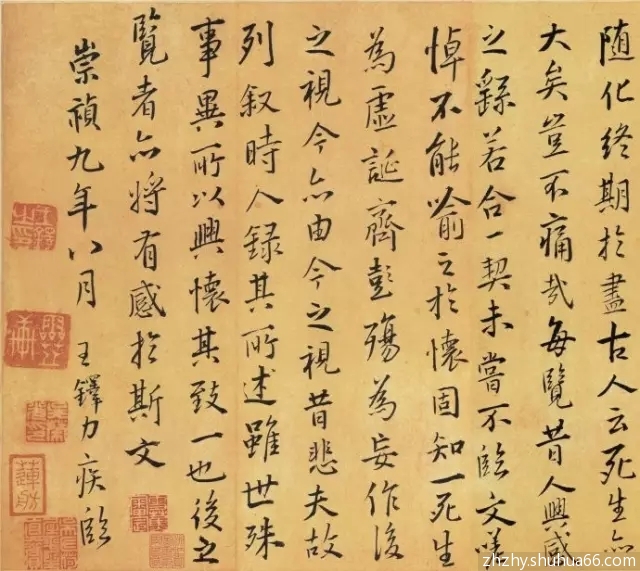 随化終期於盡古人云死生亦
大矣豈不痛哉每覽昔人興感
之繇若合一契未嘗不臨文嗟
悼不能喻之於懷固知一死生
為虛誕齊彭殤為妄作後
之視今亦由今之視昔悲夫故
列叙時人錄其所述雖世殊
事異所以興懷其致一也後之
覽者亦將有感於斯文
崇禎九年八月 王鐸力疾臨
王鐸之印
蓮舫
zhzhy.shuhua66.com